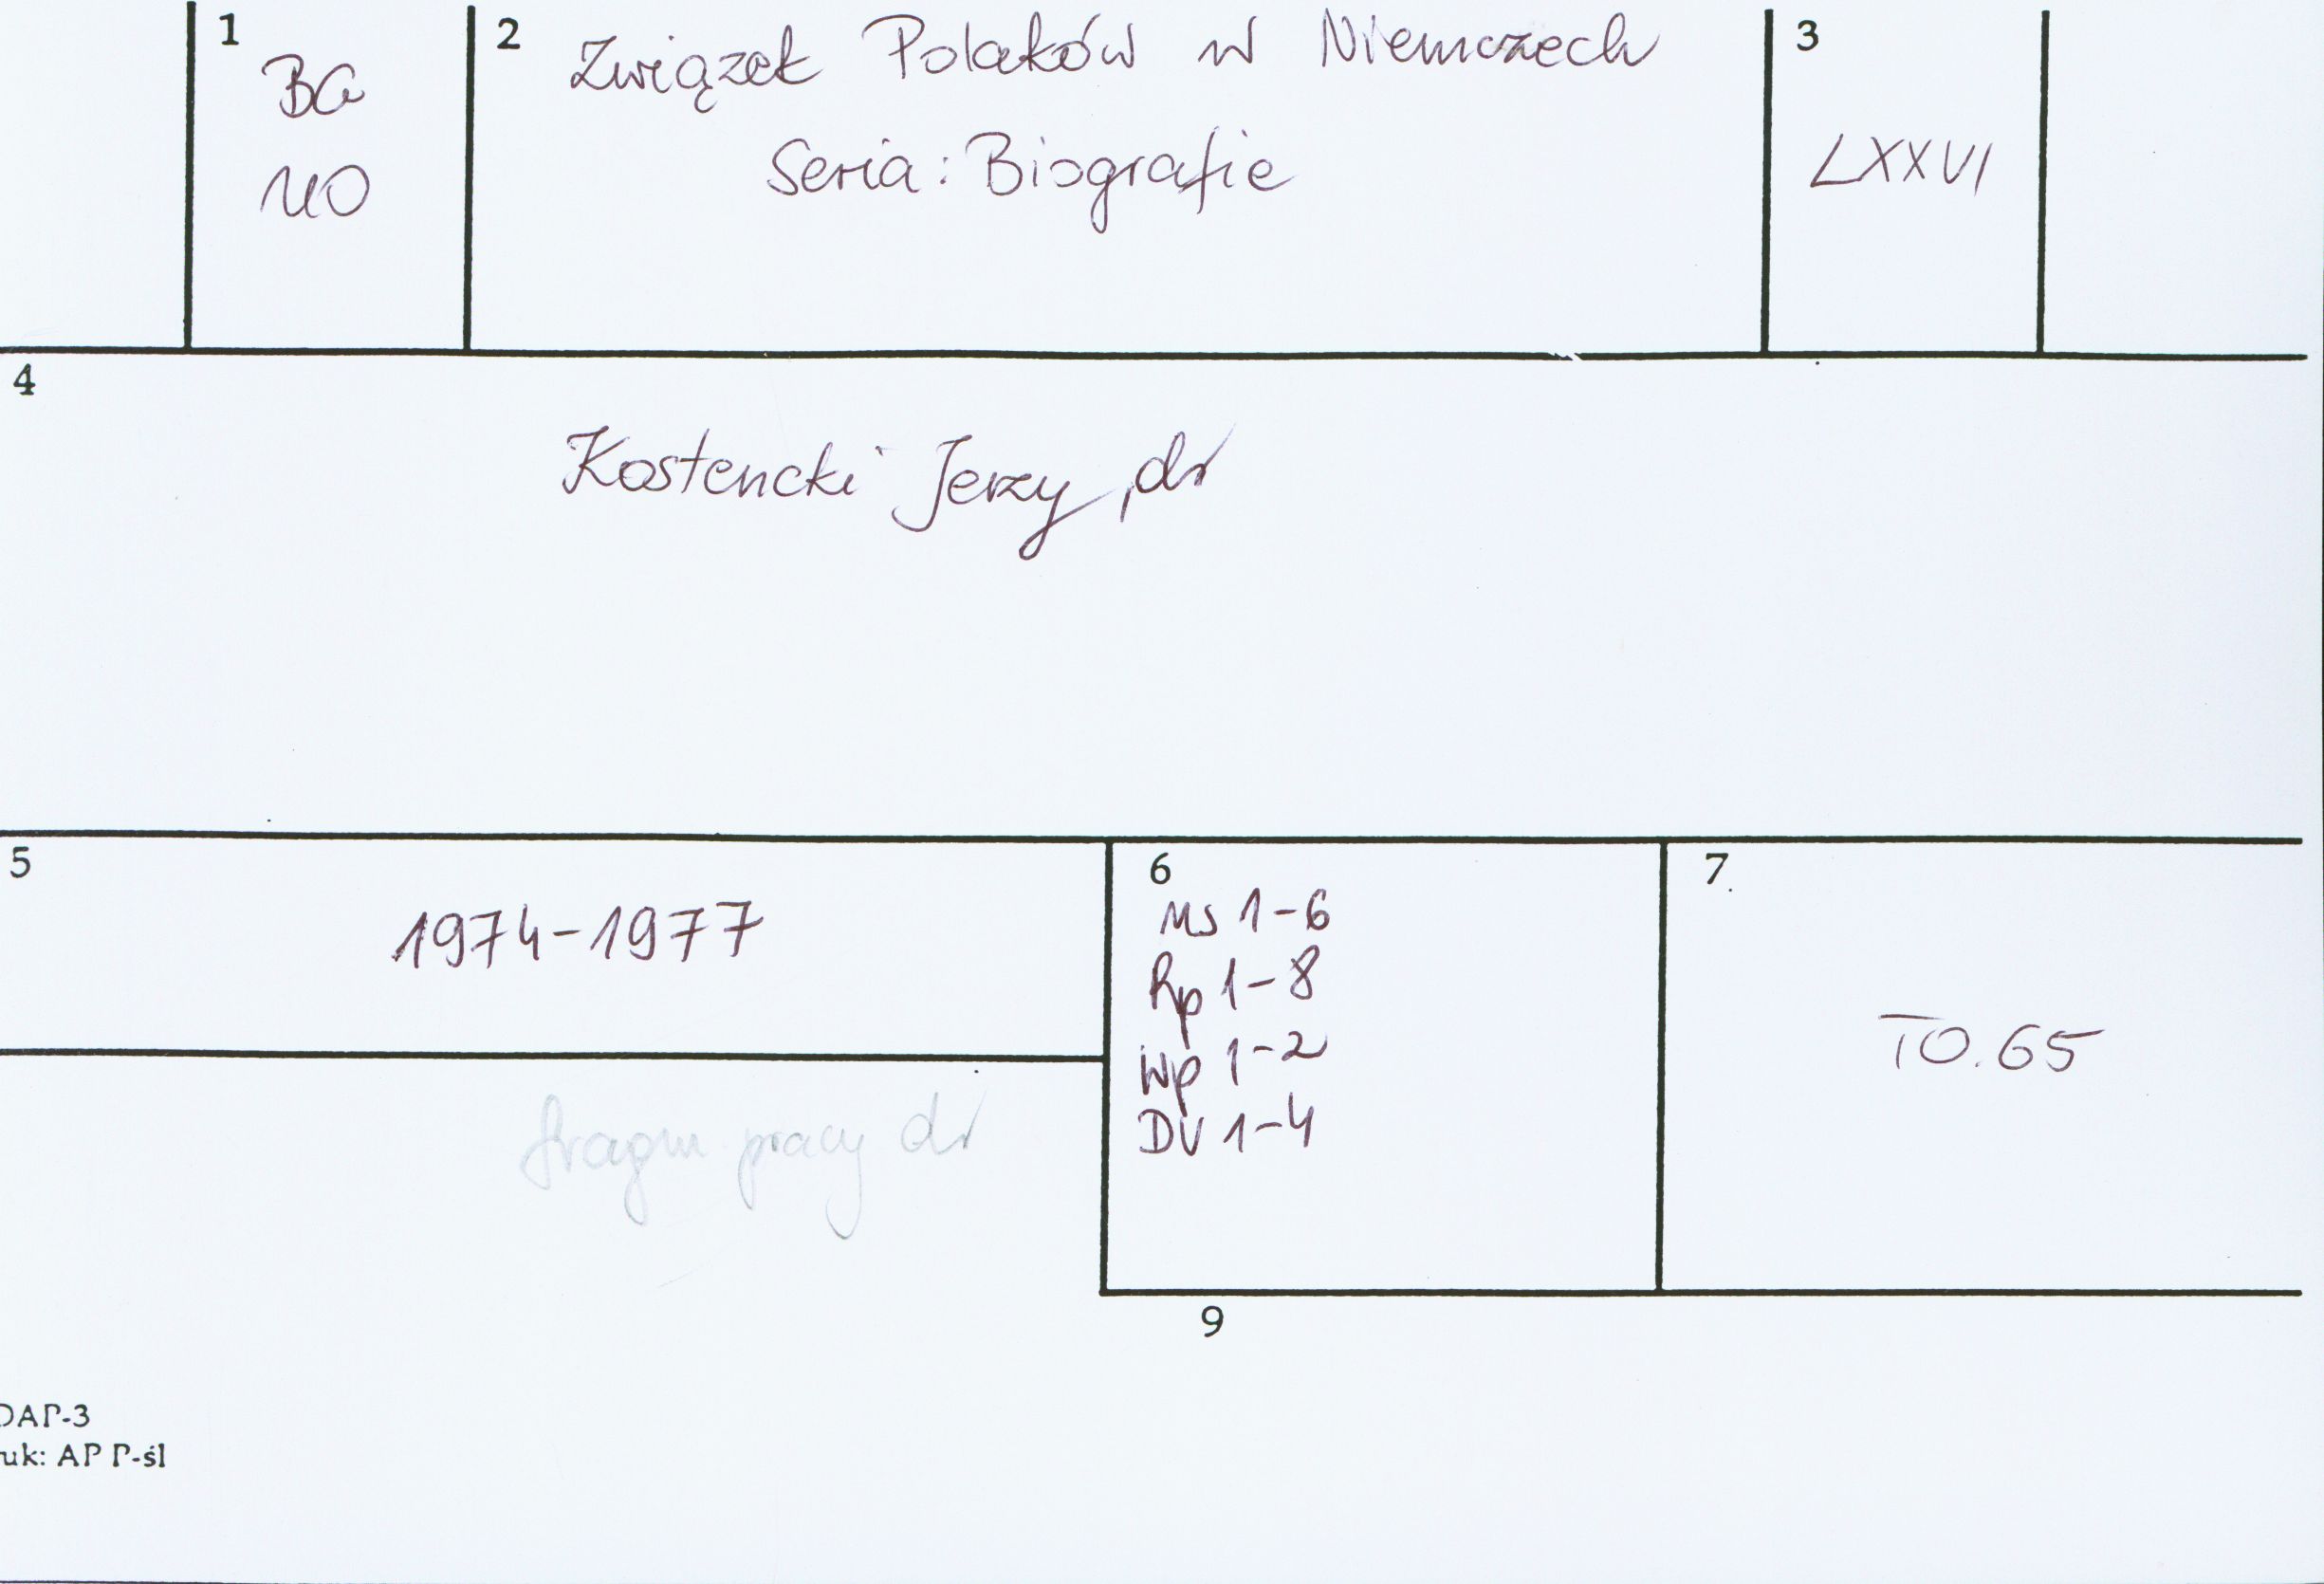 1
BG
2
Związek Polaków w Niemczech
Seria: Biografie
3
LXXVI
4
Kostencki Jerzy, dr
5
1974-1977
6
Ms 1-6
Rp 1-8
Wp 1-2
DV 1-4
7
TO.65
fragm pracy dr
9
DAP-3
uk: AP P-śl